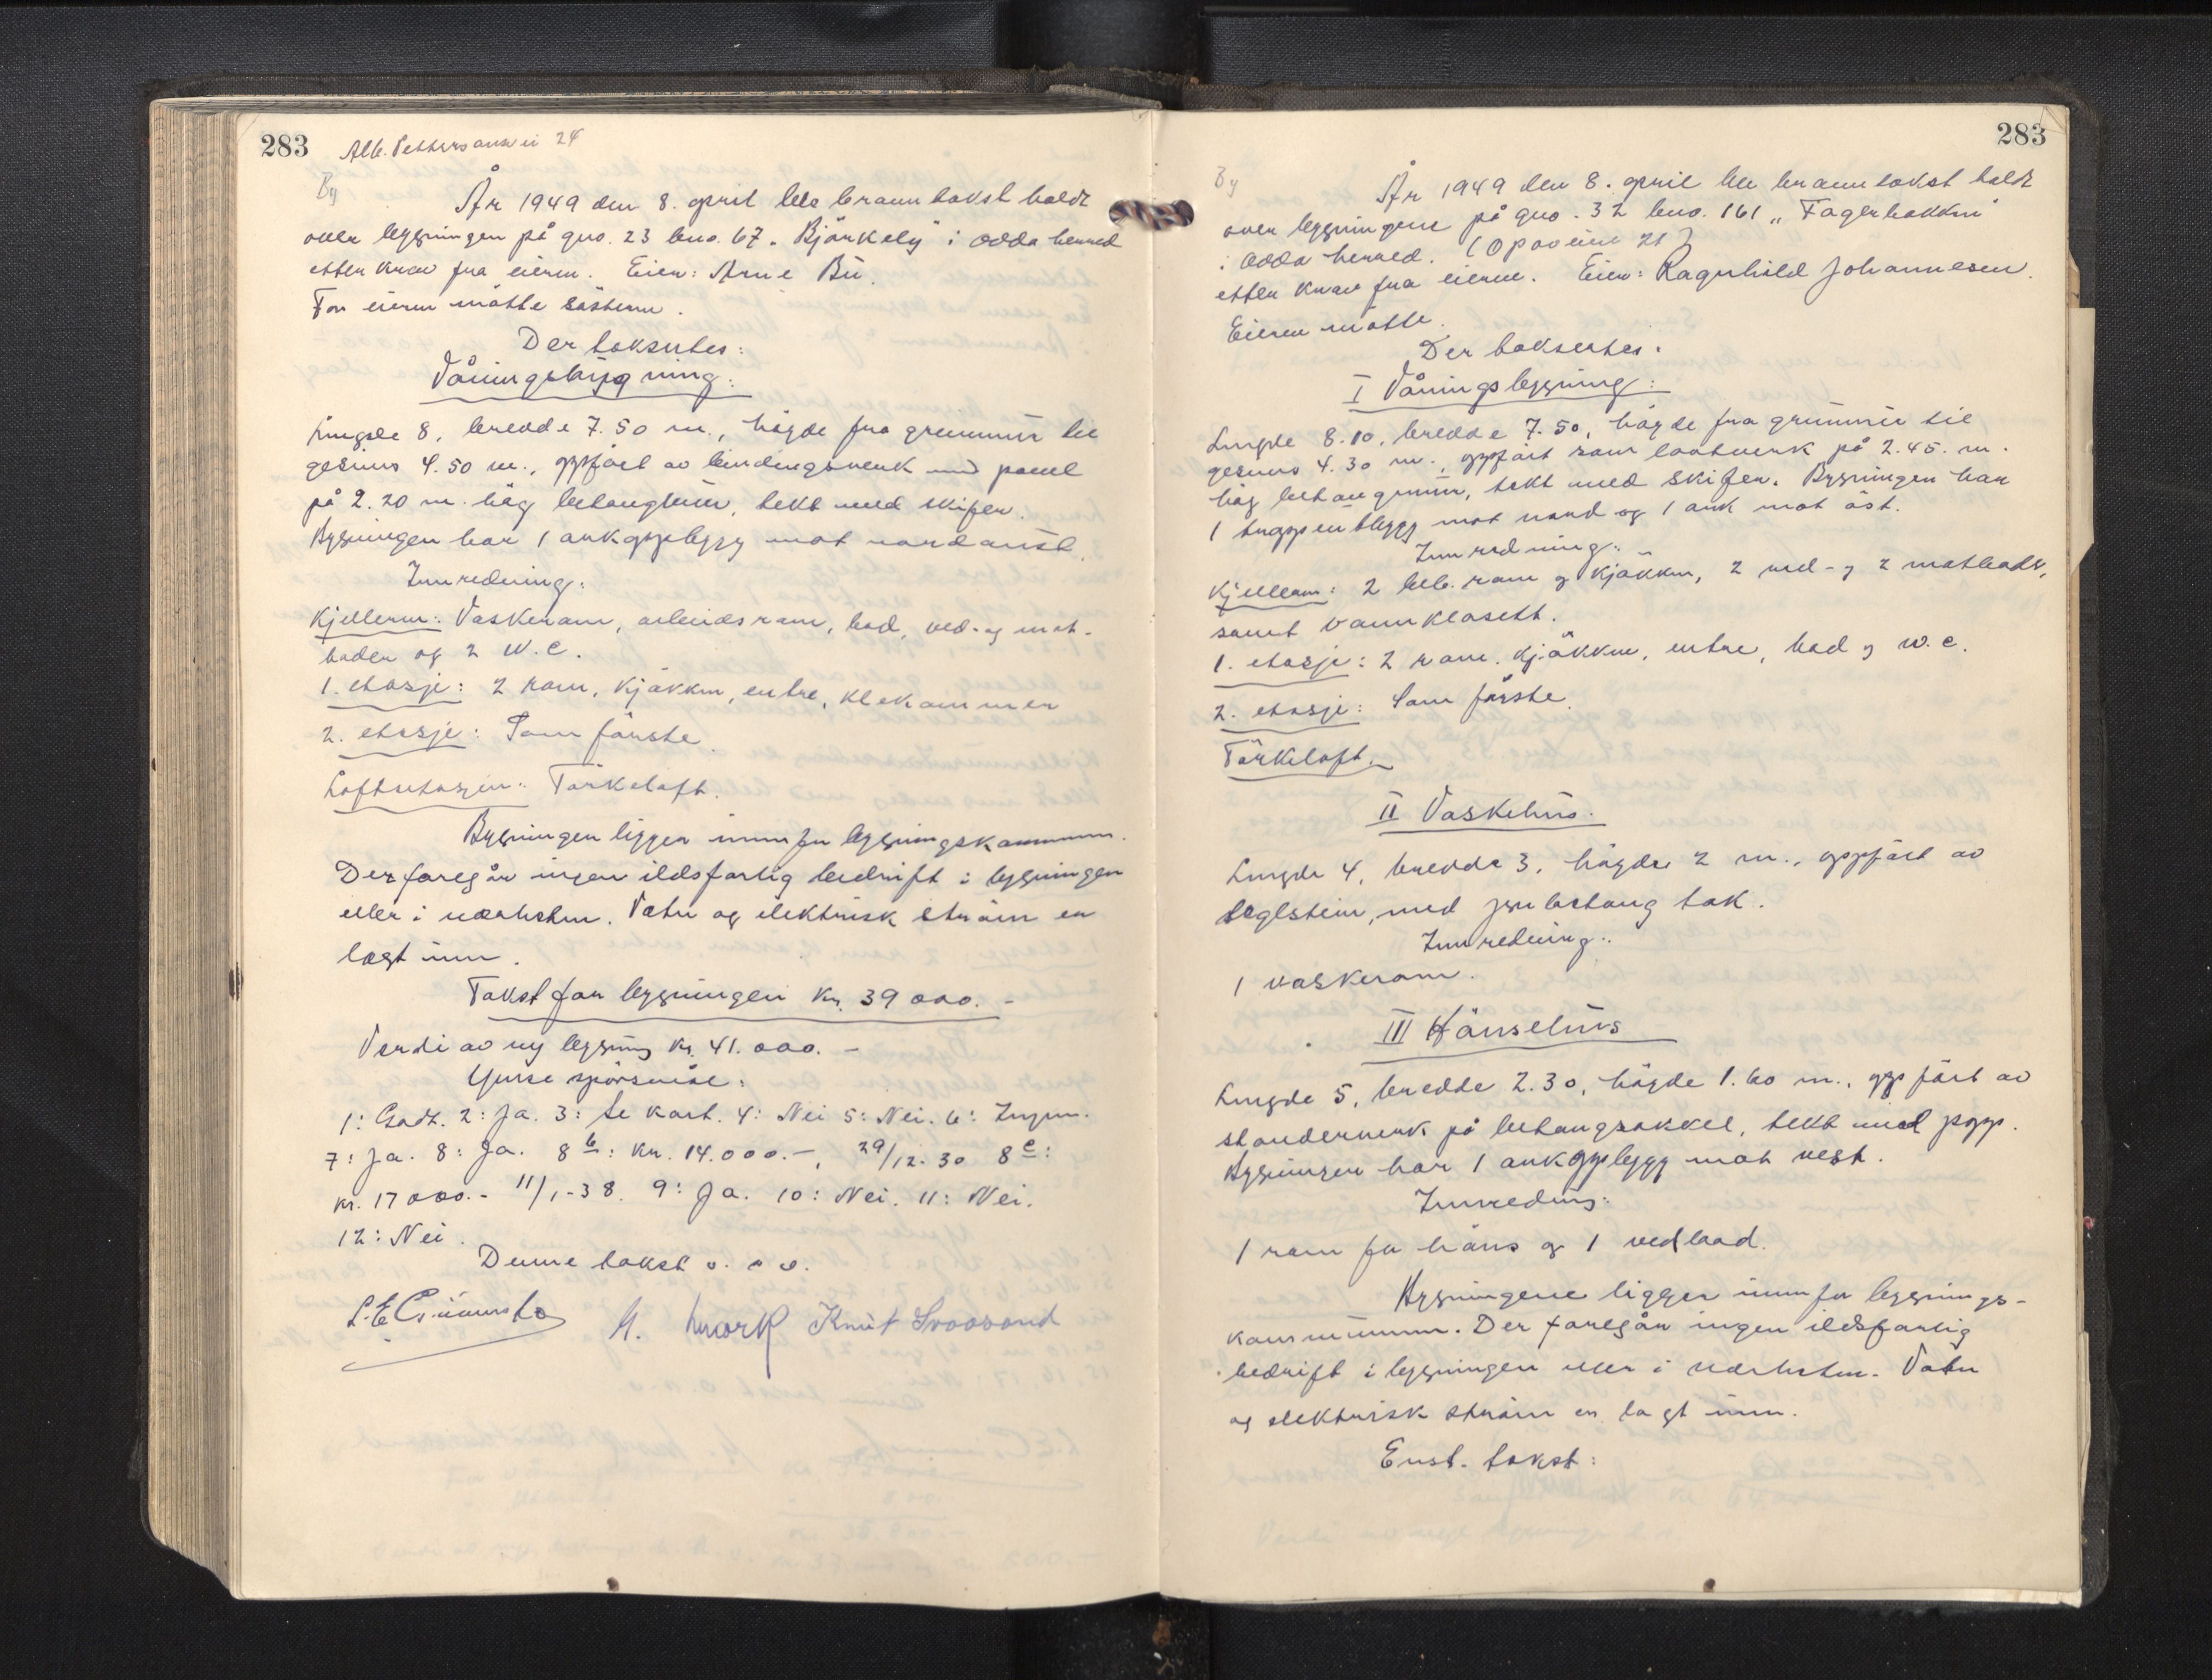 283 Alb. Pettersonsvei 24
By
År 1949 den 8. april ble branntakst holdt
over bygningen på gno. 23 bno. 67 „Bjørkely" i Odda herred
etter krav fra eieren. Eier: Arne Bu.
For eieren møtte søsteren.
Der takseres:
Våningsbygning:
Lengde 8, bredde 7.50 m., høyde fra grunnmur til
gesims 4.50 m., oppført av bindingsverk med panel
på 2.20 m. høg betongmur, tekt med skifer.
Bygningen har 1 arkoppbygg mot nordaust.
Innredning:
Kjelleren: Vaskerom, arbeidsrom, bad, ved- og mat-
boder og 2 W.C.
1. etasje: 2 rom, kjøkken, entre, klekammer
2. etasje: Som første.
Loftsetasjen: Tørkeloft.
Bygningen ligger innenfor bygningskommunen.
Der foregår ingen ildsfarlig bedrift i bygningen
eller i nærheten. Vatn og elektrisk strøm er
lagt inn.
Takst for bygningen kr. 39 000.-
Verdi av ny bygning kr. 41.000.-
Ymse spørsmål:
1: Godt. 2: Ja. 3: Se kart. 4: Nei 5: Nei. 6: Ingen.
7: Ja. 8: Ja. 8 b: kr. 14.000.-, 29/12-30 8 c:
kr. 17 000.- 11/1-38. 9: Ja. 10: Nei. 11: Nei.
12: Nei.
Denne takst o.s.v.
L. E. M. Mork Knut Svoosand
283
By
År 1949 den 8. april ble branntakst holdt
over bygningene på gno. 32 bno. 161 „Fagerbakken"
i Odda herred. (Opoveien 21)
etter krav fra eieren. Eier: Ragnhild Johannesen.
Eieren møtte.
Der takseres:
I Våningsbygning:
Lengde 8.10, bredde 7.50, høyde fra grunnmur til
gesims 4.30 m., oppført som laftverk på 2.45. m.
høg betongmur, tekt med skifer. Bygningen har
1 trappeutbygg mot nord og 1 ark mot øst.
Innredning:
Kjelleren: 2 beb. rom og kjøkken, 2 ved- og 2 matboder,
samt vannklosett.
1. etasje: 2 rom, kjøkken, entre, bad og w.c.
2. etasje: Som første.
Tørkeloft.
II Vaskehus.
Lengde 4, bredde 3, høyde 2 m., oppført av
teglstein, med jernbetong tak.
Innredning:
1 vaskerom.
III Hønsehus
Lengde 5, bredde 2.30, høyde 1.60 m., oppført av
stenderverk på betongsokkel, tekt med papp.
Bygningen har 1 arkoppbygg mot vest.
Innredning:
1 rom for høns og 1 vedbod.
Bygningene ligger innenfor bygnings-
kommunen. Der foregår ingen ildsfarlig
bedrift i bygningen eller i nærheten. Vatn
og elektrisk strøm er lagt inn.
Enst. takst: